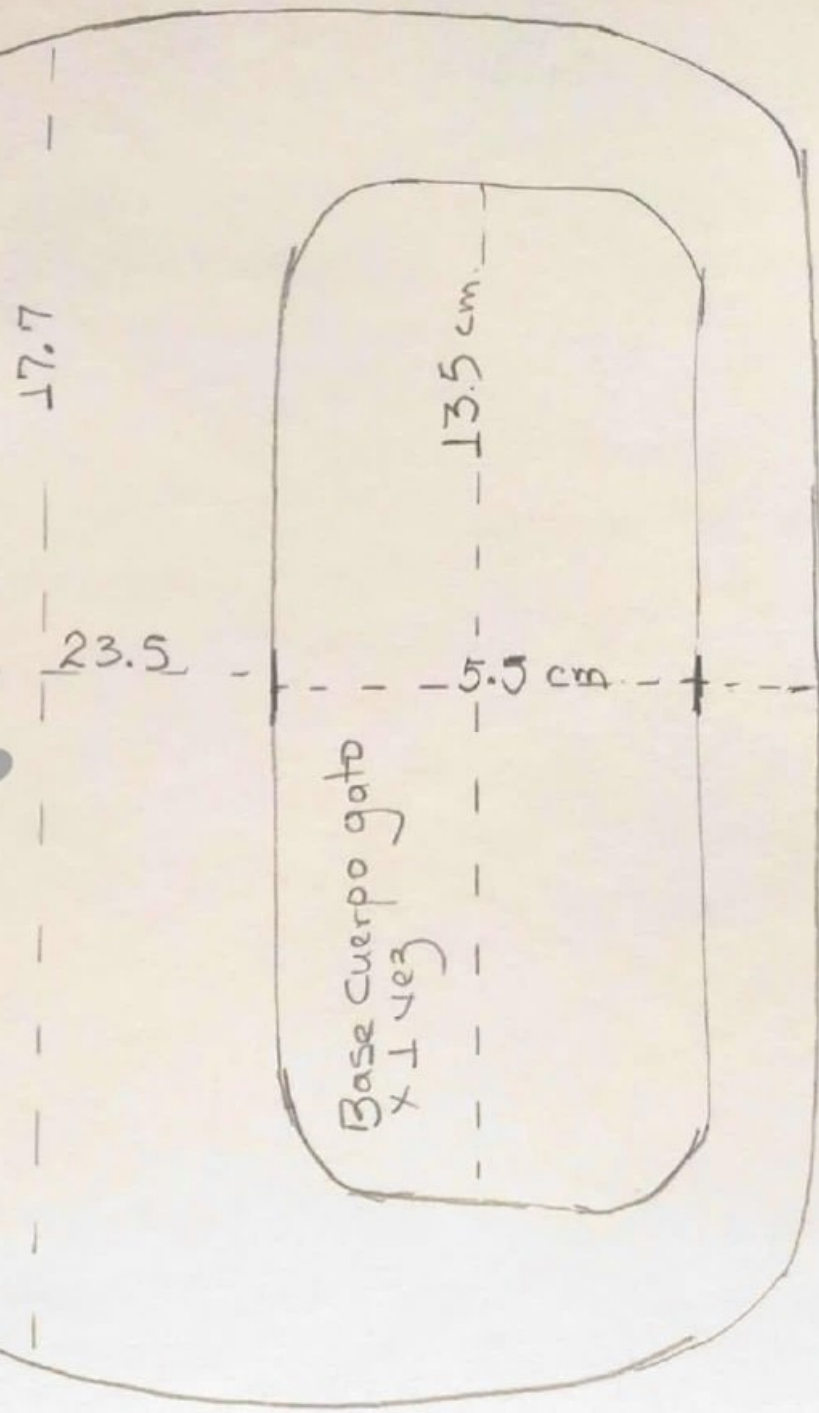 17.7
23.5
13.5 cm.
5.5 cm
Base Cuerpo gato
x 1 vez